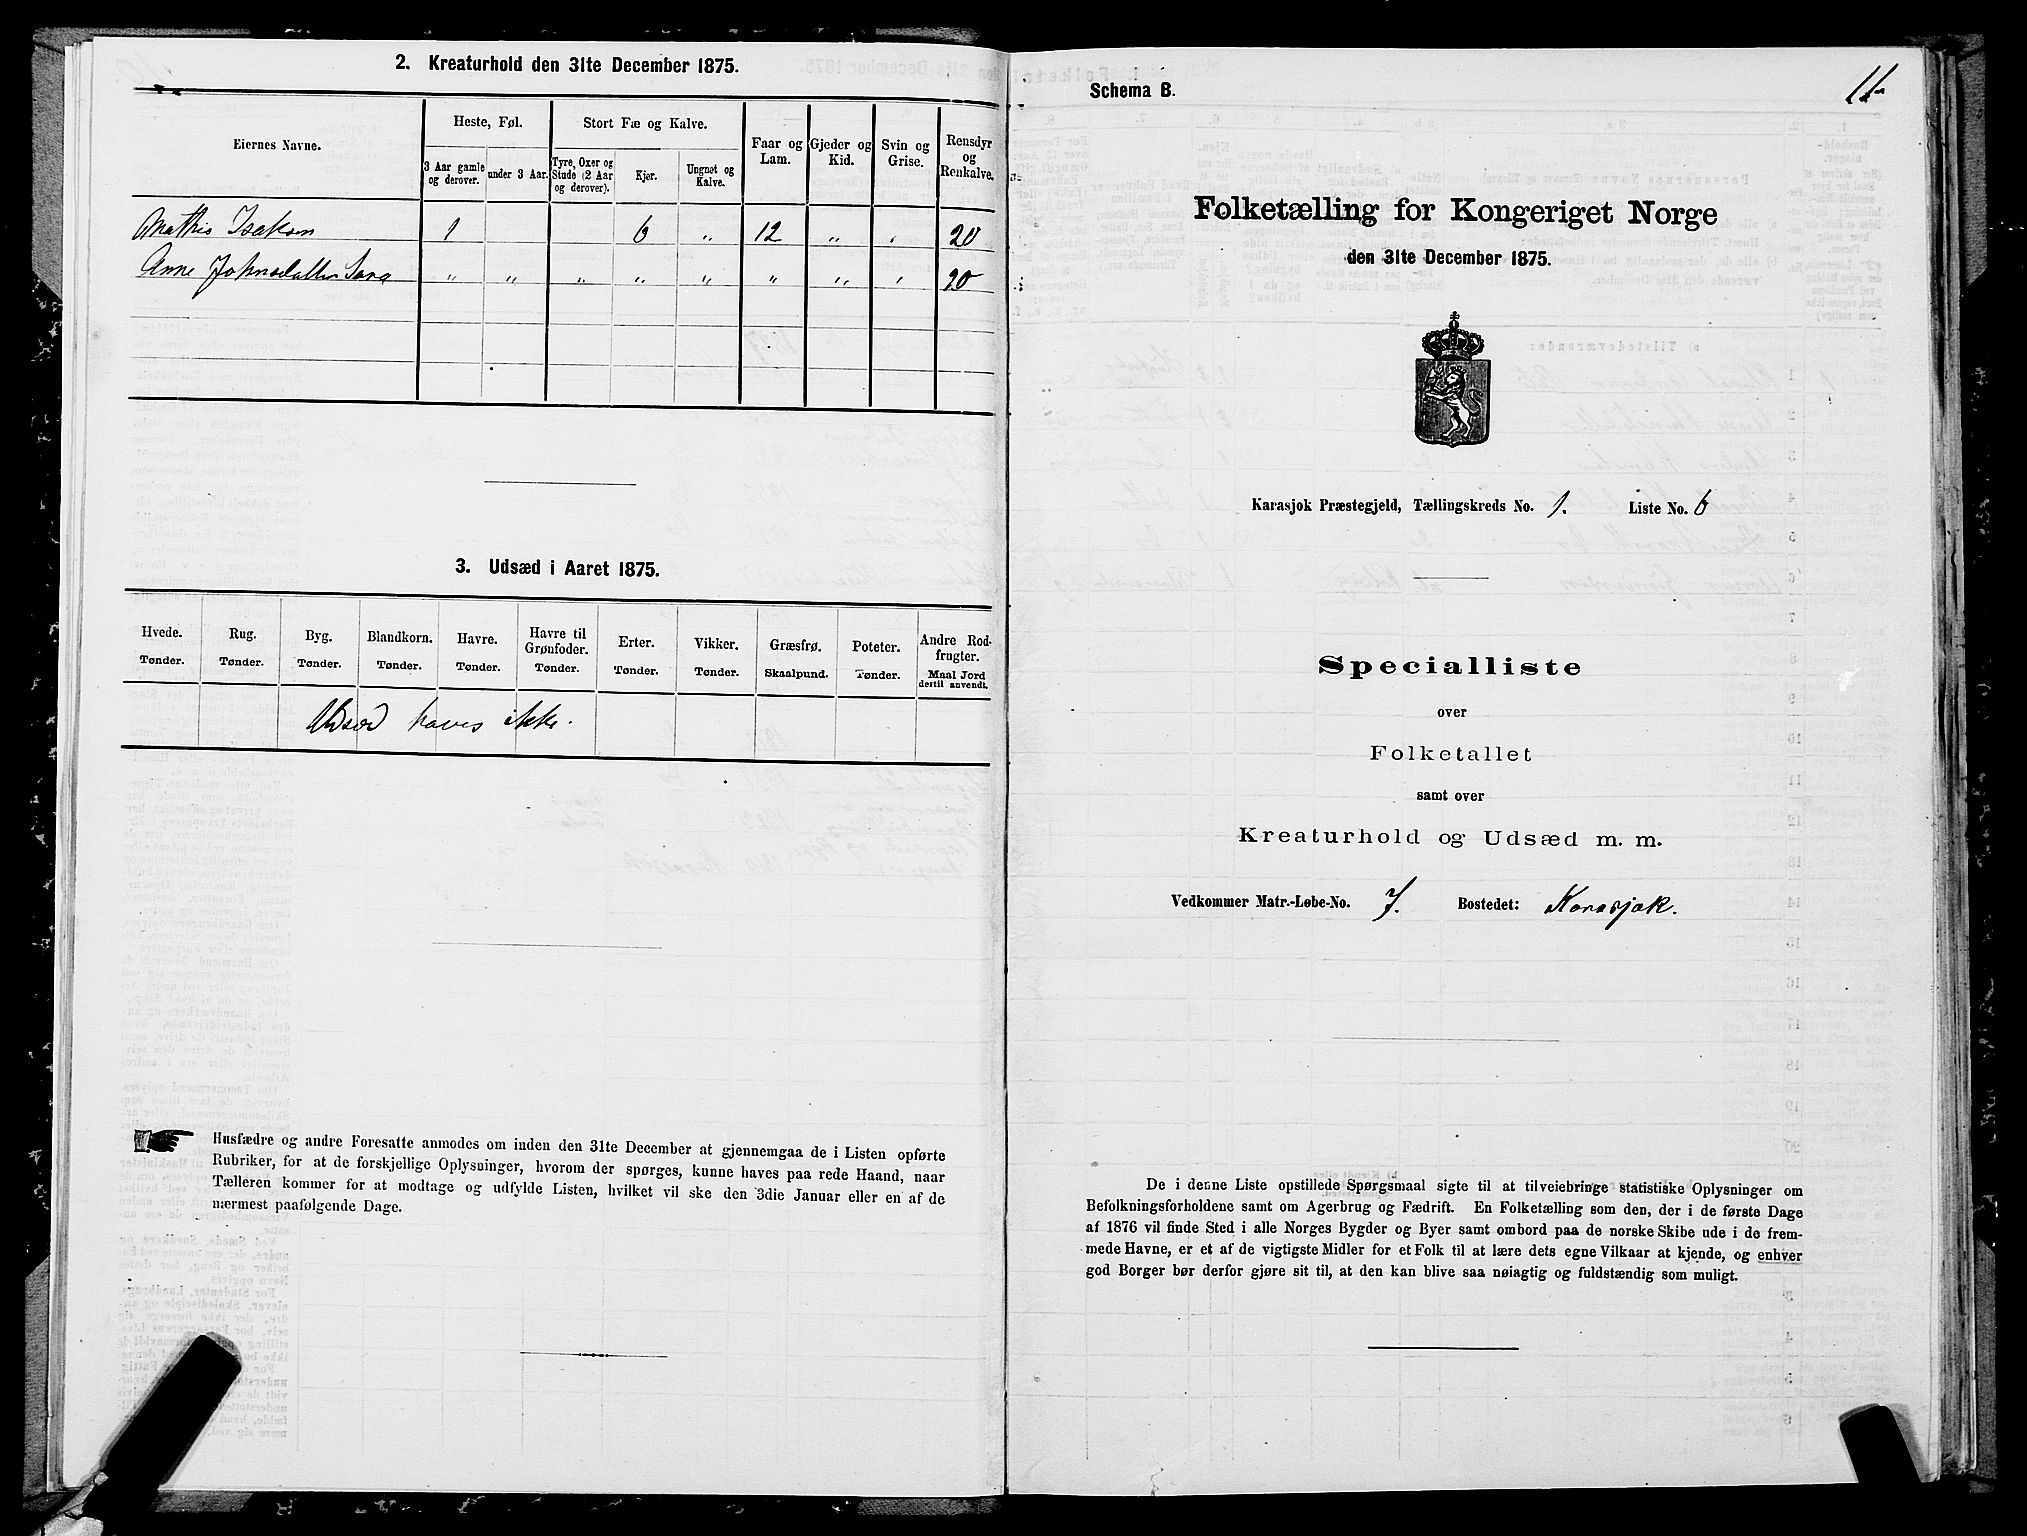 2. Kreaturhold den 31te December 1875.
Eiernes Navne.
Heste, Føl.
Stort Fæ og Kalve.
Faar og Lam.
Gjeder og Kid.
Svin og Grise.
Rensdyr og Renkalve.
3 Aar gamle og derover.
under 3 Aar.
Tyre, Oxer og Stude (2 Aar og derover).
Kjer.
Ungnøt og Kalve.
Mathis Isaksen 1 6 " 12 " " 20
Anne Johnsdatter Sara " " " " " " " " 20
3. Udsæd i Aaret 1875.
Hvede. Rug. Byg. Blandkorn. Havre. Havre til Grønfoder. Erter. Vikker. Græsfrø. Poteter. Andre Rodfrugter.
Tønder. Tønder. Tønder. Tønder. Tønder. Tønder. Tønder. Tønder. Skaalpund. Tønder. Maal Jord dertil anvendt.
Udsæd haves ikke.
Husfædre og andre Foresatte anmodes om inden den 31te December at gjennemgaa de i Listen opførte
Rubriker, for at de forskjellige Oplysninger, hvorom der spørges, kunne haves paa rede Haand, naar
Tælleren kommer for at modtage og udfylde Listen, hvilket vil ske den 3die Januar eller en af de
nærmest paafølgende Dage.
Schema B.
11
Folketælling for Kongeriget Norge
den 31te December 1875.
Karasjok Præstegjeld, Tællingskreds No. 1. Liste No. 6
Specialliste
over
Folketallet
samt over
Kreaturhold og Udsæd m. m.
Vedkommer Matr.-Løbe-No. 7. Bostedet: Karasjok.
De i denne Liste opstillede Spørgsmaal sigte til at tilveiebringe statistiske Oplysninger om
Befolkningsforholdene samt om Agerbrug og Fædrift. En Folketælling som den, der i de første Dage
af 1876 vil finde Sted i alle Norges Bygder og Byer samt ombord paa de norske Skibe ude i de frem-
mede Havne, er et af de vigtigste Midler for et Folk til at lære dets egne Vilkaar at kjende, og enhver
god Borger bør derfor gjøre sit til, at den kan blive saa nøiagtig og fuldstændig som muligt.